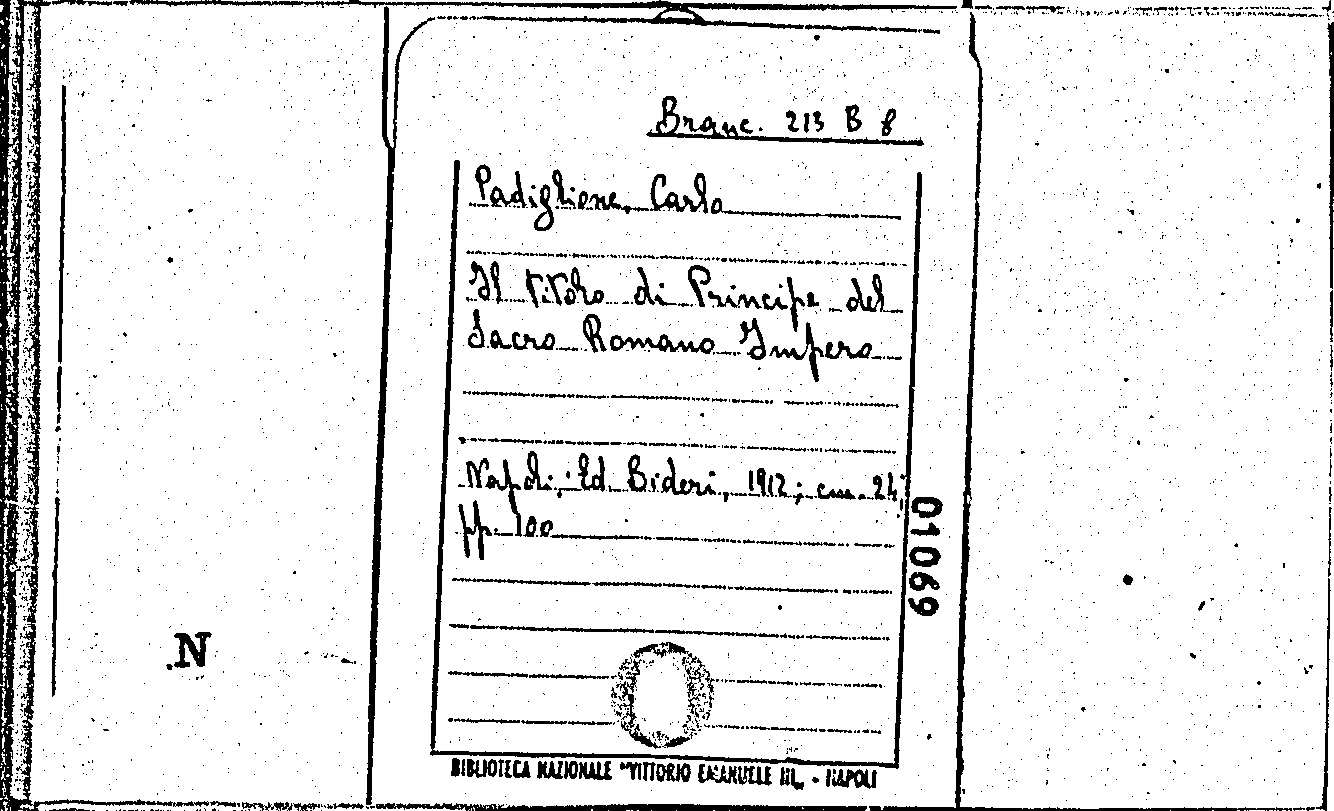 Branc. 213 B 8
Padiglione, Carlo
Il titolo di Principe del
Sacro Romano Impero
Napoli, Ed. Bideri, 1912; cm. 24;
pp. 100
01069
.N
BIBLIOTECA NAZIONALE "VITTORIO EMANUELE III„ - NAPOLI